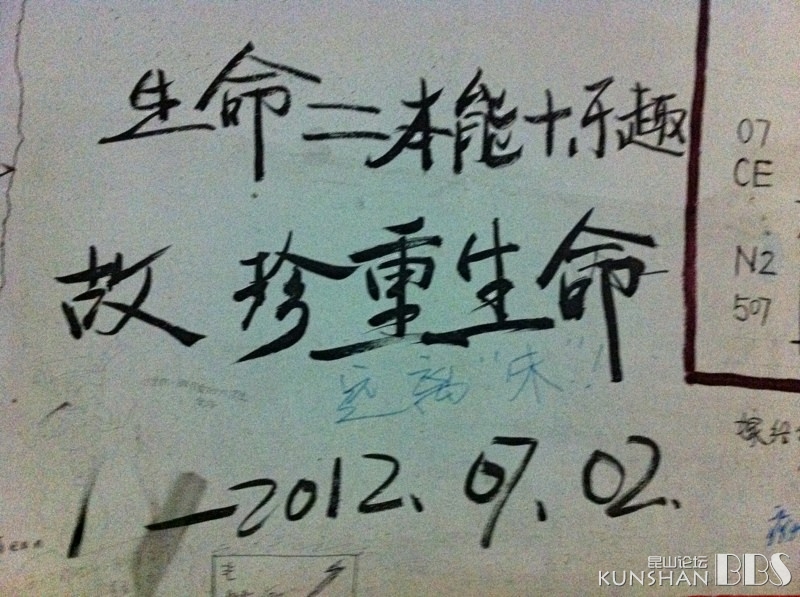 生命=本能+乐趣
故珍重生命
远离"朱"!
—2012.07.02.
07
CE
N2
507
嫁给
昆山论坛
KUNSHAN BBS